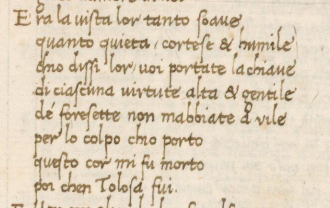 Era la vista lor tanto soave
quanto quieta, cortese & humile
ch'io dissi lor, voi portate la chiave
di ciascuna virtute alta & gentile
de foresette non mabbiate a vile
per lo colpo chio porto
questo cor mi fu morto
poi chen Tolosa fui.